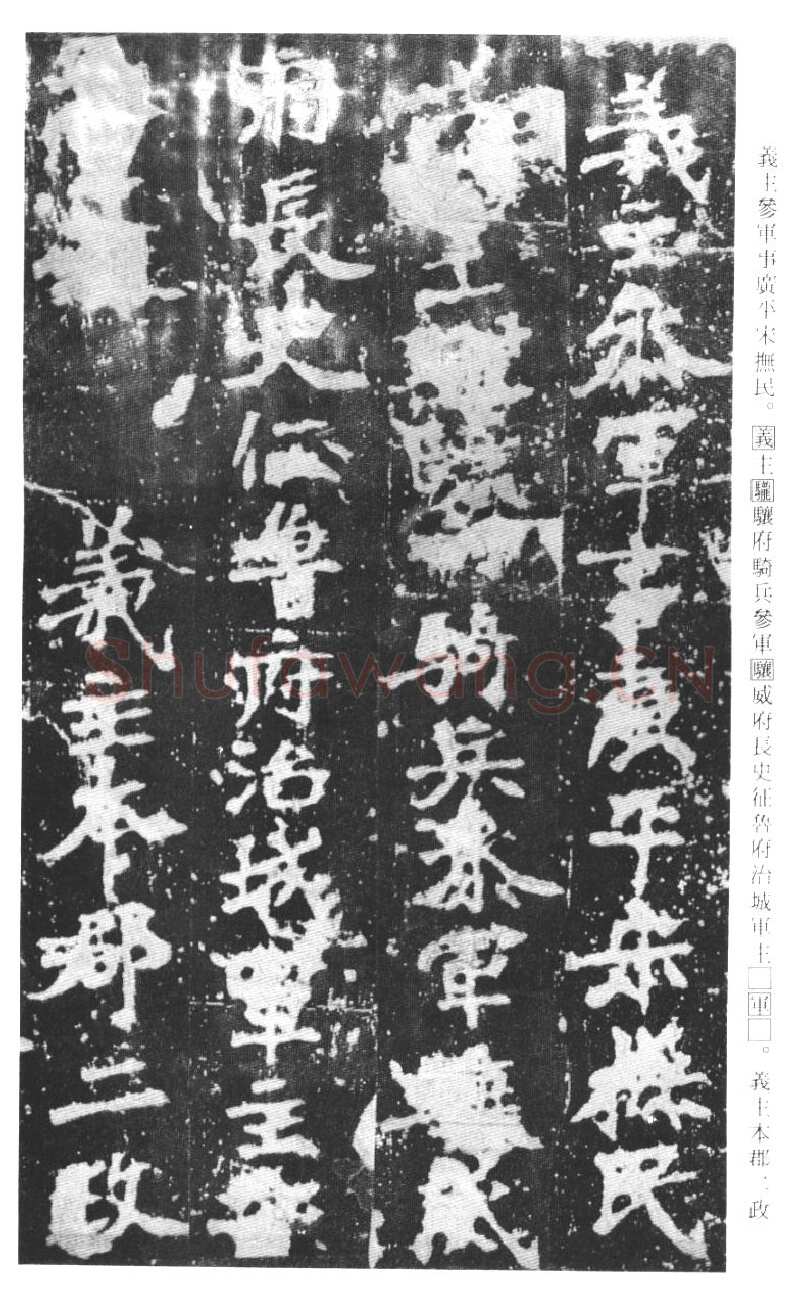 義主參軍事廣平宋撫民。義主驤府騎兵參軍驤威府長史征魯府治城軍主□軍□。義主本郡二政
義主叅軍事廣平宋撫民
義主騎兵叅軍驤威
府長史征魯府治城軍主
義主本郡二政
Shufawang.CN